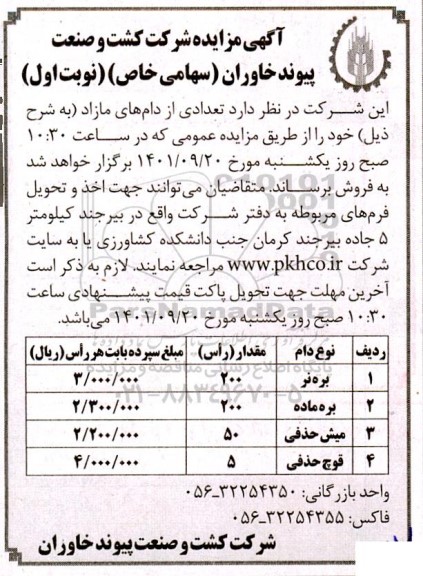 آگهی مزایده شرکت کشت و صنعت
پیوند خاوران (سهامی خاص) (نوبت اول)
این شرکت در نظر دارد تعدادی از دام‌های مازاد (به شرح
ذیل) خود را از طریق مزایده عمومی که در ساعت ۱۰:۳۰
صبح روز یکشنبه مورخ ۱۴۰۱/۰۹/۲۰ برگزار خواهد شد
به فروش برساند. متقاضیان می‌توانند جهت اخذ و تحویل
فرم‌های مربوطه به دفتر شرکت واقع در بیرجند کیلومتر
۵ جاده بیرجند کرمان جنب دانشکده کشاورزی یا به سایت
شرکت www.pkhco.ir مراجعه نمایند. لازم به ذکر است
آخرین مهلت جهت تحویل پاکت قیمت پیشنهادی ساعت
۱۰:۳۰ صبح روز یکشنبه مورخ ۱۴۰۱/۰۹/۲۰ می‌باشد.
ردیف نوع دام مقدار (رأس) مبلغ سپرده بابت هر رأس (ریال)
۱ بره نر ۲۰۰ ۳/۰۰۰/۰۰۰
۲ بره ماده ۲۰۰ ۲/۳۰۰/۰۰۰
۳ میش حذفی ۵۰ ۲/۲۰۰/۰۰۰
۴ قوچ حذفی ۵ ۴/۰۰۰/۰۰۰
واحد بازرگانی: ۳۲۲۵۴۳۵۰-۰۵۶
فاکس: ۳۲۲۵۴۳۵۵-۰۵۶
شرکت کشت و صنعت پیوند خاوران
ParsNamadData
پایگاه اطلاع رسانی مناقصه و مزایده
۰۲۱-۸۸۳۴۹۶۷۰-۵